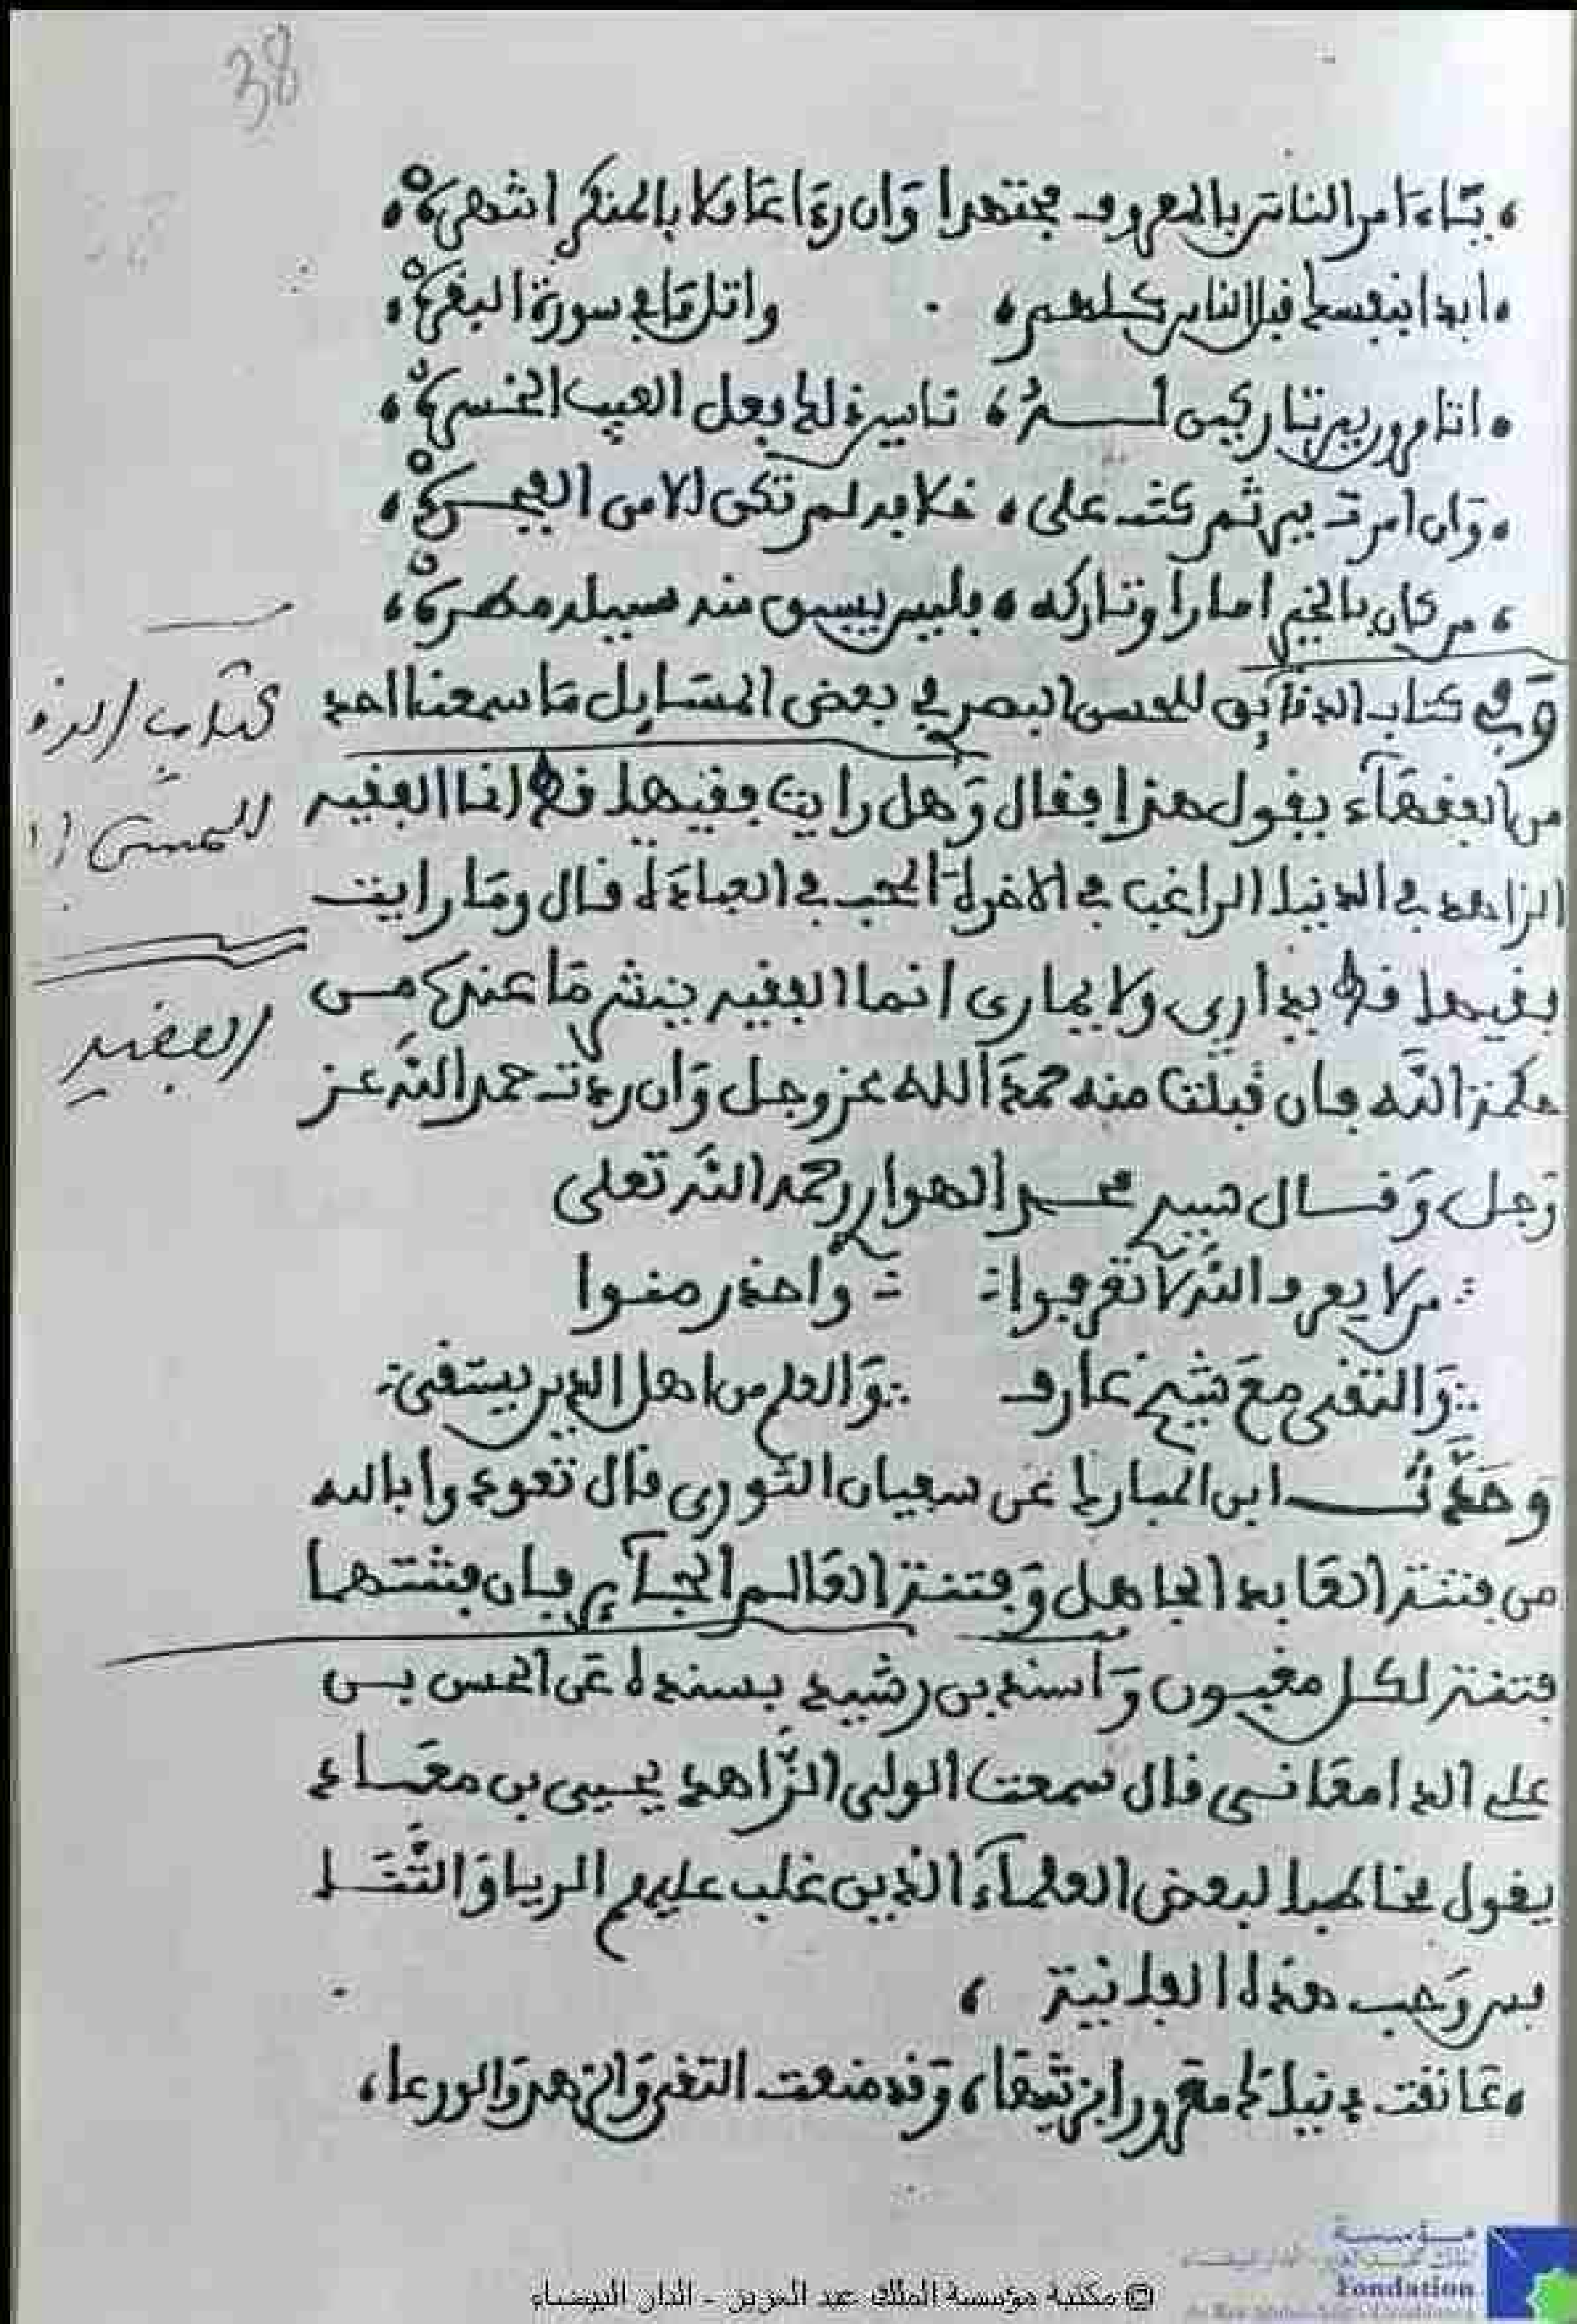 38
يا ءامر الناس بالمعروف مجتهدا وان رءا عاملا بالمنكر انتهره
ابدا بنفسك قبل الناس كلهم واتل ما في سورة البقره
اتامرون ببر تاركين له ناسين ذلك فعل الخسره
وان امرت ببر ثم كنت على خلافه لم تكن الا من الفجره
من كان بالخير امارا وتاركه فليس يسبق منه سيله مطره
وفي كتاب الدقائق للحسن البصري في بعض المسايل ما سمعنا احد
من الفقهاء يقول هذا فقال وهل رايت فقيها قط انما الفقيه
الزاهد في الدنيا الراغب في الاخرة المحب في العبادة قال وما رايت
فقيها قط يداري ولا يماري انما الفقيه ينشر ما عنده من
حكمة الله فان قبلت منه حمد الله عز وجل وان ردت حمد الله عز
وجل وقال سيدي محمد الهواري رحمه الله تعلى
من لا يعرف الله لا تقربوا واحذر منوا
والتقى مع شيخ عارف والعلم من اهل الدين يستقى
وحدث ابن المبارك عن سفيان الثوري قال تعوذوا بالله
من فتنة العابد الجاهل وفتنة العالم الجآير فان فتنتهما
فتنة لكل مغبون واسند بن رشيد بسنده عن الحسن بن
علي الدامغاني قال سمعت الولي الزاهد يحيى بن معاذ
يقول مخاطبا لبعض العلمآء الذين غلب عليهم الريا والثنا
وحب هذه الفانية
عانقت دنياك مغرورا بزينتها وقد منعت التقى والزهد والورعا
كتاب
للحسن
الفقيه
© مكتبة مؤسسة الملك عبد العزيز - الدار البيضاء
مؤسسة
Fondation